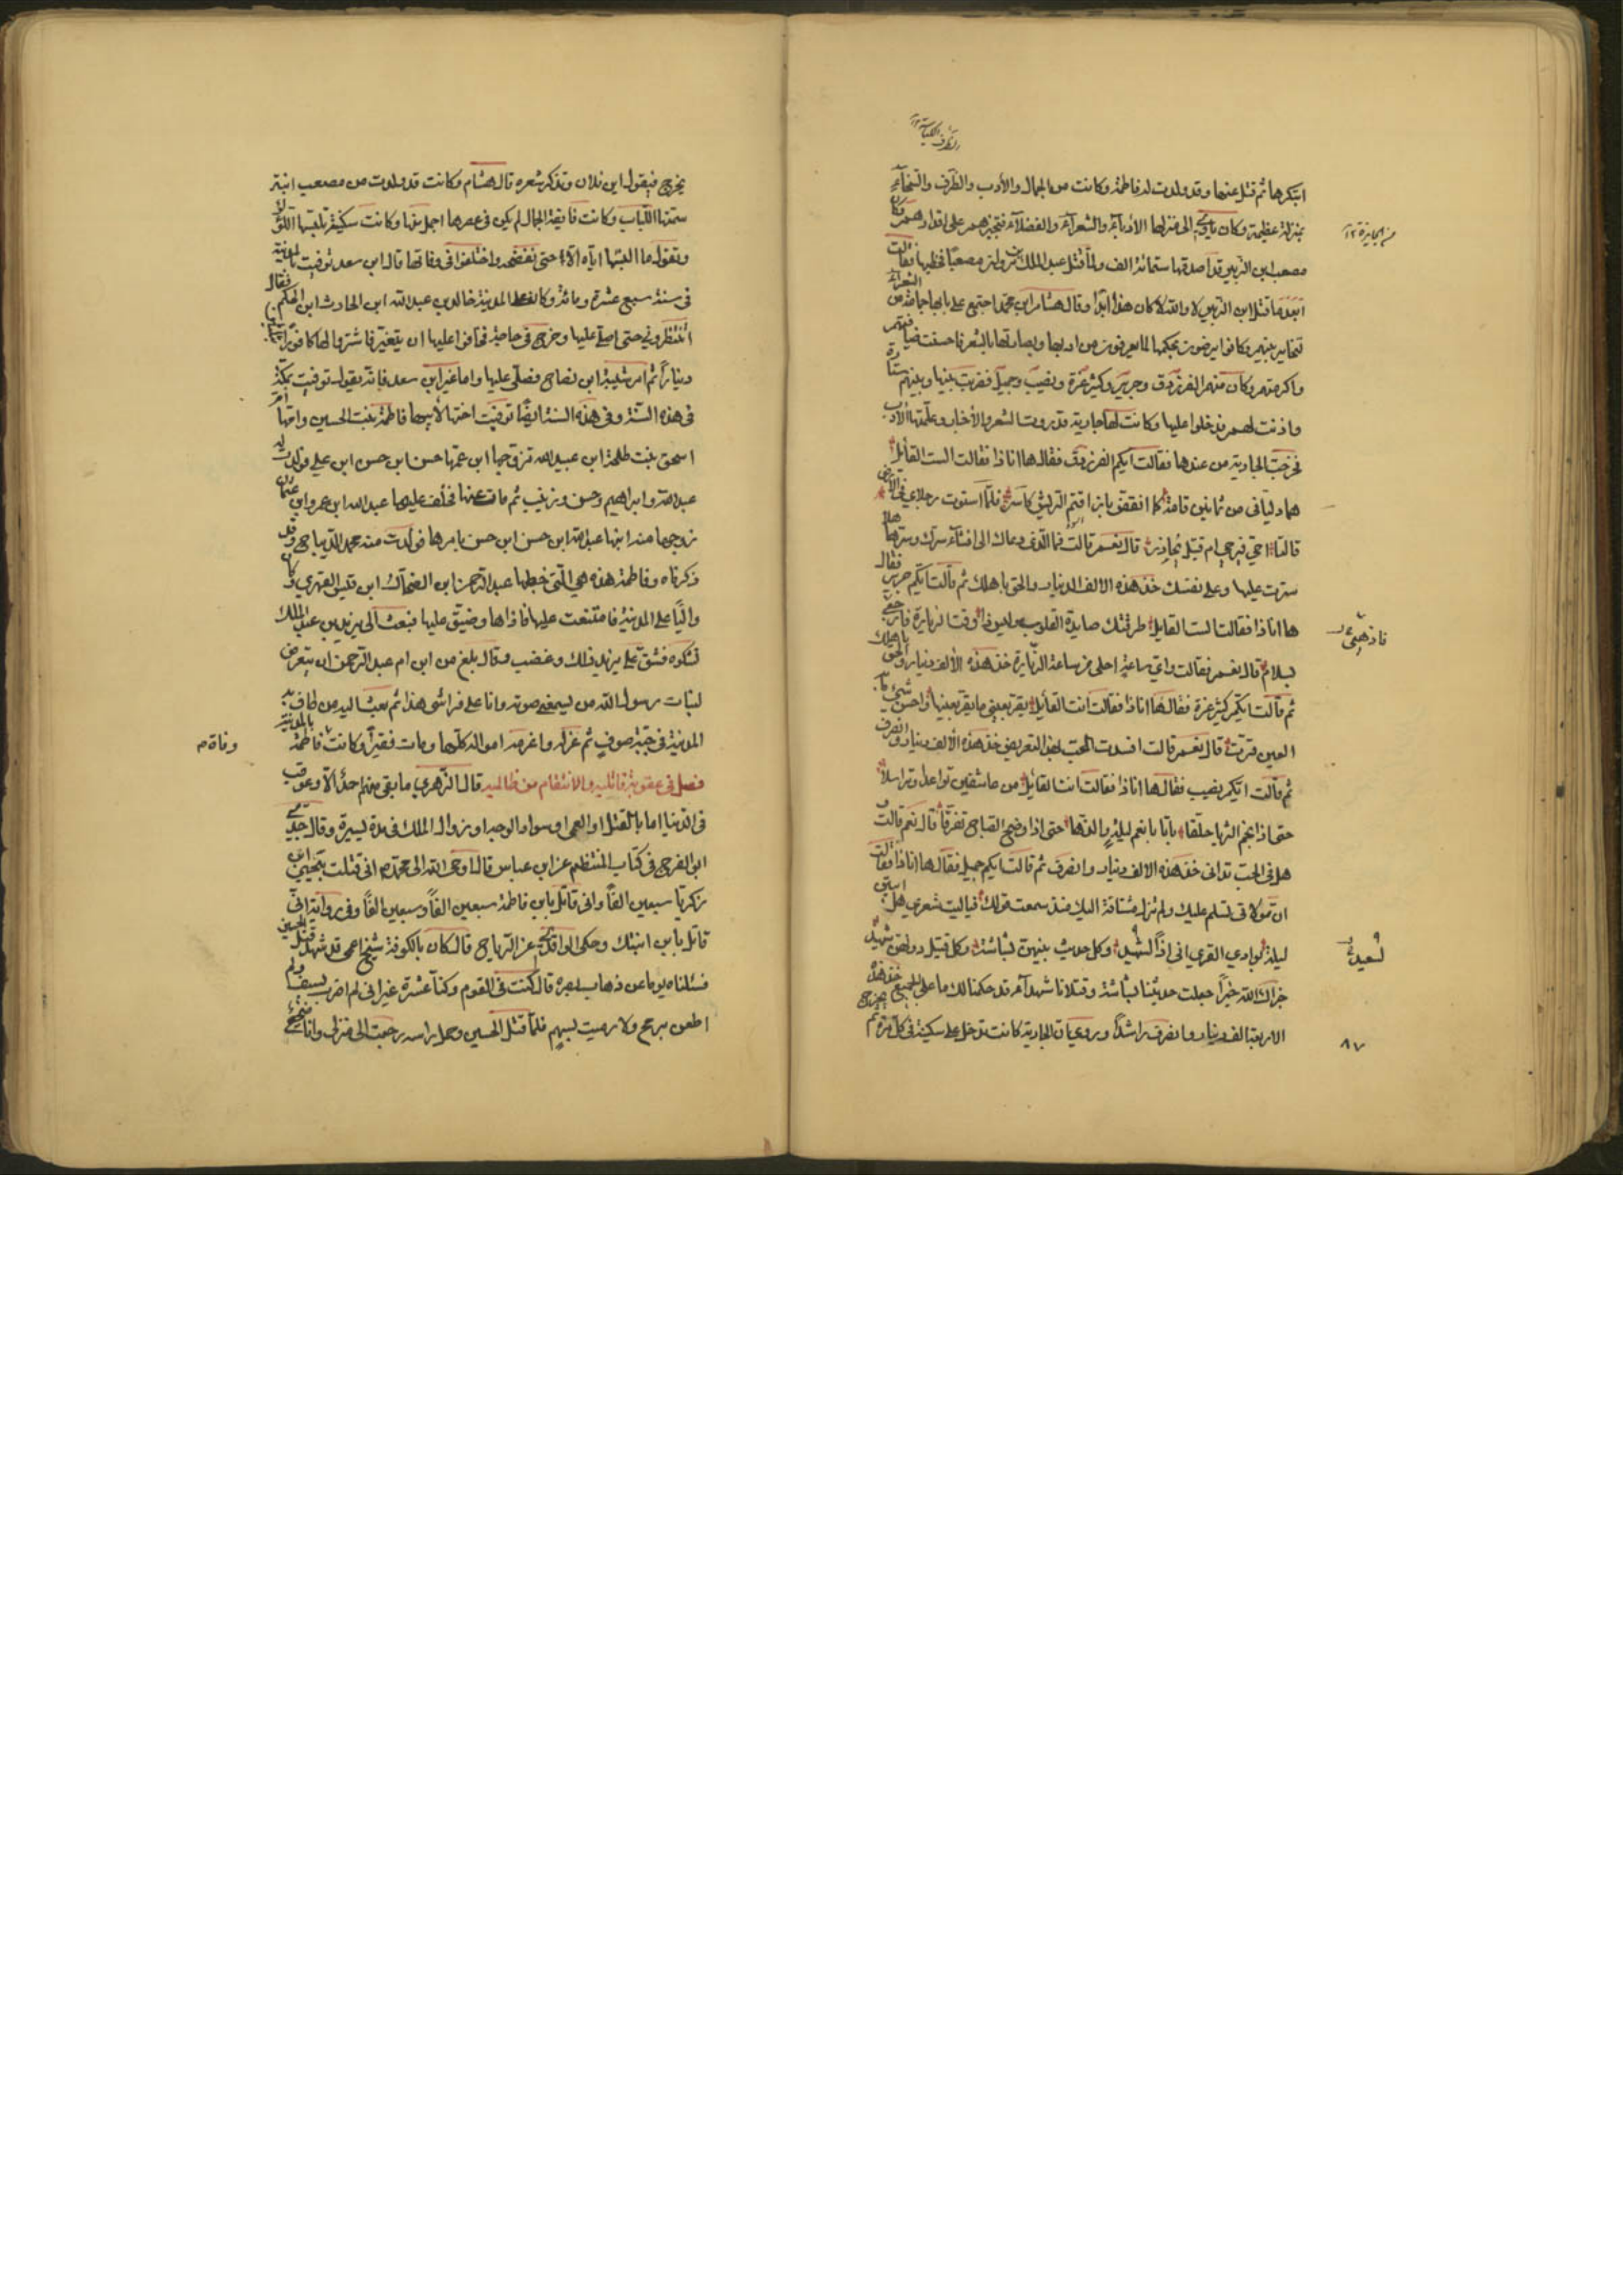 ابتكرها ثم قتل عنها وقد ولدت له فاطمة وكانت من الجمال والأدب والظرف والسخاء
بمنزلة عظيمة وكان ياوي الى منزلها الأدباء والشعراء والفضلاء فتجيزهم على اقدارهم وكان
مصعب ابن الزبير قد اصدقها ستمائة الف ولما قتل عبد الملك مصعبا خطبها فقالت
ابعد ما قتل ابن الزبير لا والله لا كان هذا ابدا وقال هشام ابن محمد اجتمع على بابها جماعة من الشعراء
تخاير بينهم وكانوا يرضون بحكمها لما يعرفون من ادبها وبصارتها بالشعر فاحسنت ضيافتهم
واكرمتهم وكان منهم الفرزدق وجرير وكثير عزة ونصيب وجميل فضربت بينها وبينهم ستارة
واذنت لهم فدخلوا عليها وكانت لها جارية قد روت الشعر والأخبار وعلمتها الأدب
فخرجت الجارية من عندها فقالت ايكم الفرزدق فقال ها انا ذا فقالت الست القائل
هما دليانى من ثمانين قامة كما انقض باز اقتم الريش كاسره فلما استوت رجلاي في الأرض
قالتا احي فيرجى ام قتيل نحاذره قال نعم قالت فما الذى دعاك الى افشاء سرك وسرها هلا
سترت عليها وعلى نفسك خذ هذه الالف الدينار والحق باهلك ثم قالت ايكم جرير فقال
ها انا ذا فقالت الست القايل طرقتك صايدة القلوب وليس ذا وقت الزيارة فارجعي
بسلام قال نعم فقالت واي ساعة احلى من ساعة الزيارة خذ هذه الألف دينار والحق باهلك
ثم قالت ايكم كثير عزة فقال ها انا ذا فقالت انت القائل يقر بعيني ما يقر بعينها واحسن شيء ما به
العين قرت قال نعم قالت افسدت الحب بهذا التعريض خذ هذه الألف دينار وانصرف
ثم قالت ايكم نصيب فقال ها انا ذا فقالت انت القائل من عاشقين تواعدا وتراسلا
حتى اذا نجم الثريا حلقا باتا بانعم ليلة والذها حتى اذا وضح الصباح تفرقا قال نعم قالت
هل فى الحب تدانى خذ هذه الالف دينار وانصرف ثم قالت ايكم جميل فقال ها انا ذا فقالت
ان مولاتى تسلم عليك ولم تزل مشتاقة اليك منذ سمعت قولك فياليت شعري هل ابيتن
ليلة بوادي القرى انى اذا لسعيد وكل حديث بينهن بشاشة وكل قتيل دونهن شهيد
جزاك الله خيرا جعلت حديثنا بشاشة وقتلانا شهداء قد حكمنا لك على الجميع خذ هذه
الاربعة الف دينار وانصرف راشدا وروي ان الجارية كانت تدخل على سكينة فى كل مرة ثم تخرج
من الجايزة ١٢
لسعيد
٨٧
يخرج فيقول اين فلان وتذكر شعره قال هشام وكانت قد ولدت من مصعب ابنة
سمتها اللباب وكانت فايقة الجمال لم يكن فى عصرها اجمل منها وكانت سكينة تلبسها اللؤلؤ
وتقول ما البستها اياه الا حتى تفضحه واختلفوا فى وفاتها قال ابن سعد توفيت بالمدينة
فى سنة سبع عشرة ومائة وكان على المدينة خالد بن عبد الله ابن الحارث ابن الحكم فقال
انتظرونى حتى اصلى عليها وخرج فى حاجة فخافوا عليها ان يتغير فاشتروا لها كافورا
دينارا ثم امر شيبة ابن نصاح فصلى عليها واما غير ابن سعد فانه يقول توفيت بمكة
فى هذه السنة وفى هذه السنة ايضا توفيت اختها لأبيها فاطمة بنت الحسين وامها ام
اسحق بنت طلحة ابن عبيد الله تزوجها ابن عمها حسن ابن حسن ابن علي فولدت له
عبد الله وابراهيم وحسن وزينب ثم مات عنها فخلف عليها عبد الله ابن عمرو ابن عثمان
زوجها منه ابنها عبد الله ابن حسن ابن حسن بامرها فولدت منه محمد الديباج وقد
ذكرناه وفاطمة هذه هي التى خطبها عبد الرحمن ابن الضحاك ابن قيس الفهري وكان
واليا على المدينة فامتنعت عليه فاذاها وضيق عليها فبعثت الى يزيد بن عبد الملك
تشكوه فشق على يزيد ذلك وغضب وقال بلغ من ابن ام عبد الرحمن ان يتعرض
لبنات رسول الله من يسمعنى صوته وانا على فراشى هذا ثم بعث اليه من طاف به
المدينة فى جبة صوف ثم عزله واغرمه امواله كلها ومات فقيرا وكانت وفاة فاطمة بالمدينة
فصل فى عقوبة قاتليه والانتقام من ظالميه قال الزهري ما بقى منهم احد الا وعوقب
فى الدنيا اما بالقتل او العمى او سواد الوجه او زوال الملك فى مدة يسيرة وقال جدى
ابو الفرج فى كتاب المنتظم عن ابن عباس قال اوحى الله الى محمد انى قتلت بيحيى ابن
زكريا سبعين الفا وانى قاتل بابن فاطمة سبعين الفا وسبعين الفا وفى رواية انى
قاتل بابن ابنتك وحكى الواقدى عن الرياح قال كان بالكوفة شيخ اعمى قد شهد قتل الحسين
فسئلناه يوما عن ذهاب بصره قال كنت فى القوم وكنا عشرة غير انى لم اضرب بسيف ولم
اطعن برمح ولا رميت بسهم فلما قتل الحسين وحمل راسه رجعت الى منزلى وانا صحيح